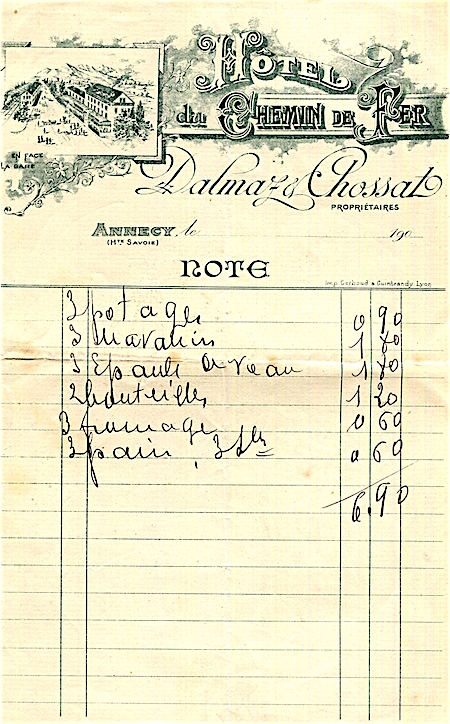 HÔTEL
du CHEMIN DE FER
EN FACE
LA GARE
Dalmaz & Chossat
PROPRIÉTAIRES
ANNECY, le 190
(HTE SAVOIE)
NOTE
Imp. Gerboud & Guintrandy Lyon
3 potages 0 90
3 1 80
3 Epaule de veau 1 80
2 bouteilles 1 20
3 fromage 0 60
3 pain, 0 60
6.90